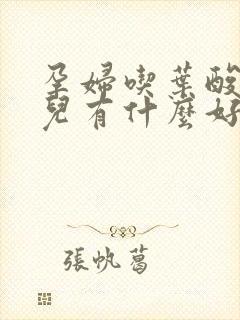 孕婦喫葉酸
兒有什麼好
張帆葛